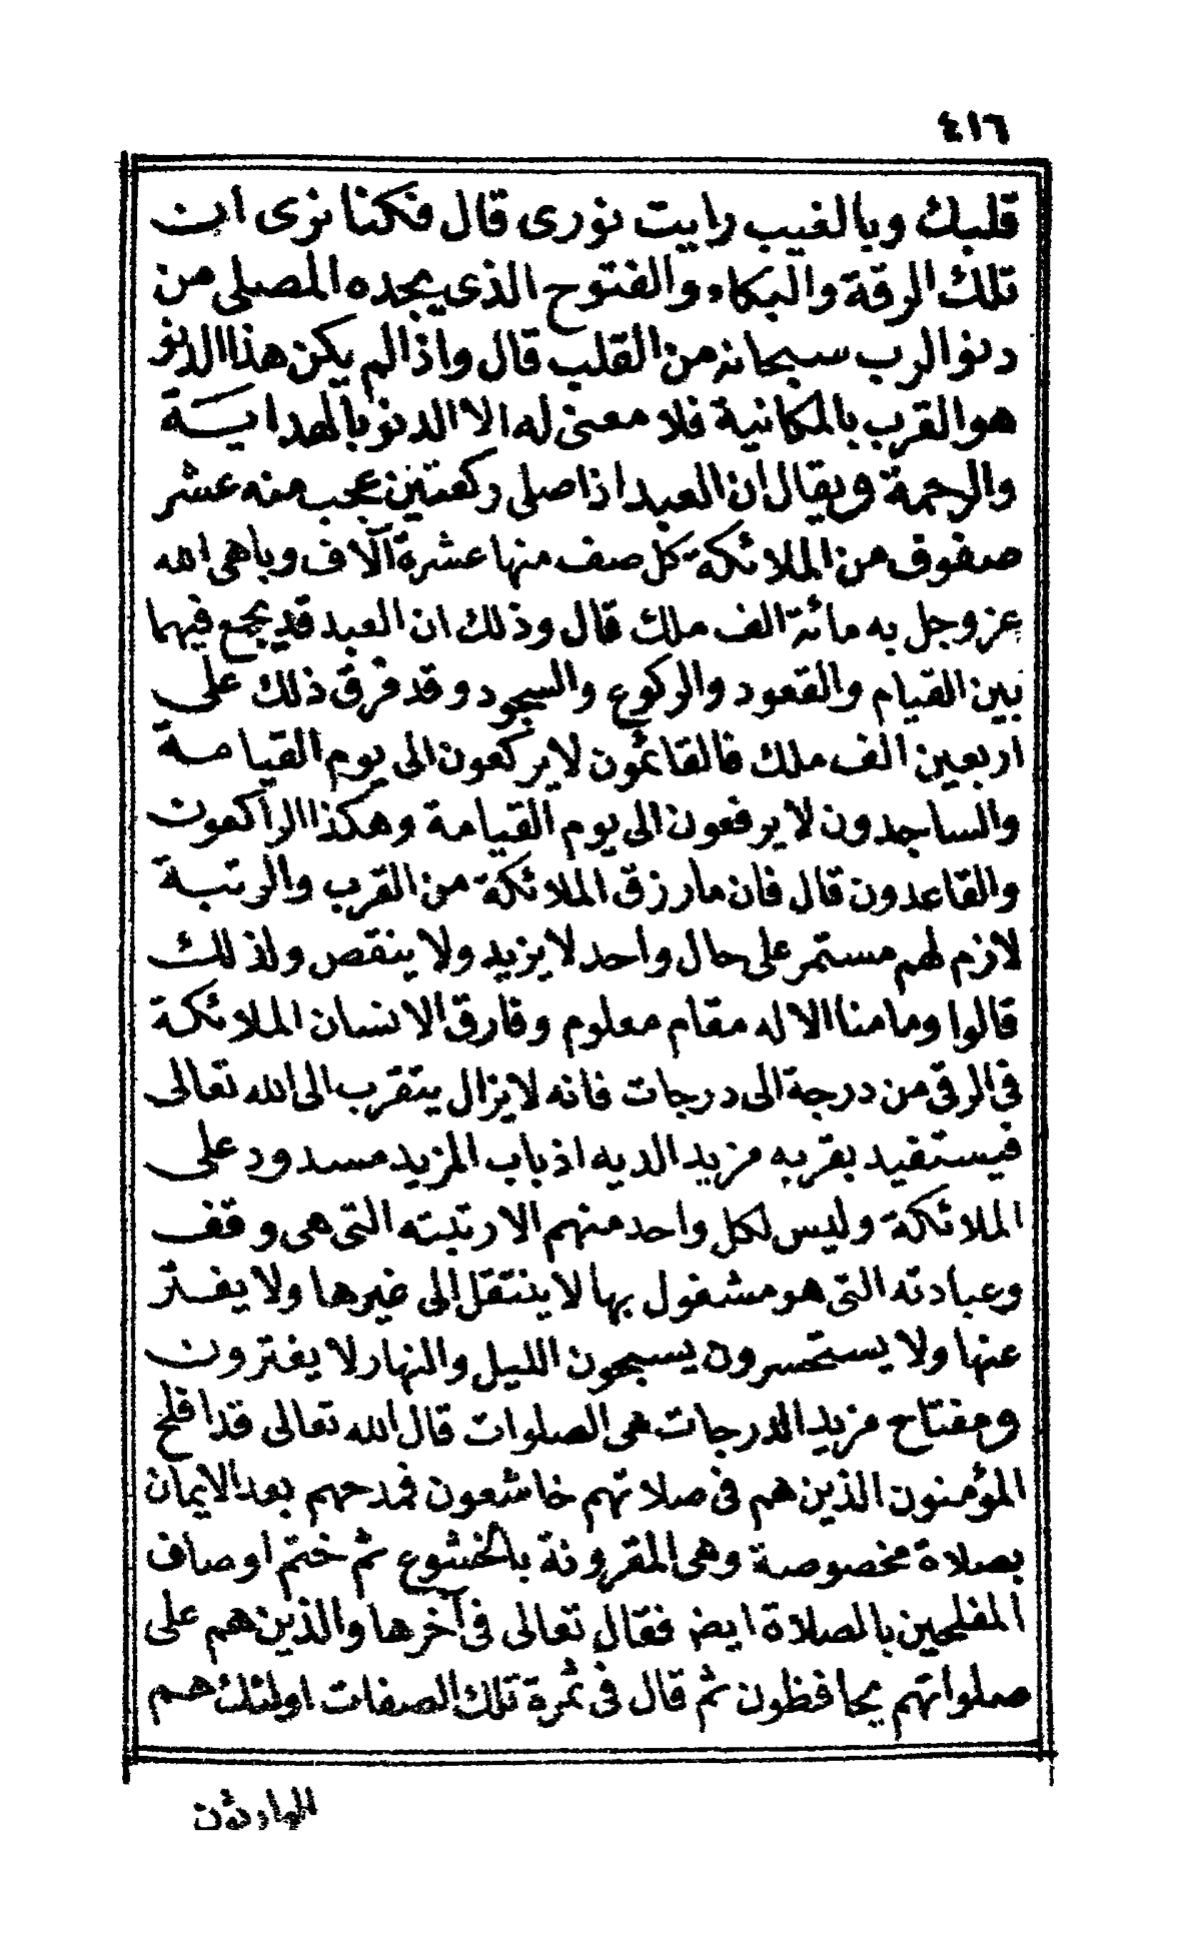 ٤١٦
قلبك وبالغيب رايت نورى قال فكنا نرى ان
تلك الرقة والبكاء والفتوح الذى يجده المصلى من
دنو الرب سبحانه من القلب قال واذا لم يكن هذا الدنو
هو القرب بالمكانية فلا معنى له الا الدنو بالهداية
والرحمة ويقال ان العبد اذا صلى ركعتين عجب منه عشر
صفوف من الملائكة كل صف منها عشرة آلاف وباهى الله
عز وجل به مائة الف ملك قال وذلك ان العبد قد يجمع فيهما
بين القيام والقعود والركوع والسجود وقد فرق ذلك على
اربعين الف ملك فالقائمون لا يركعون الى يوم القيامة
والساجدون لا يرفعون الى يوم القيامة وهكذا الراكعون
والقاعدون قال فان ما رزق الملائكة من القرب والرتبة
لازم لهم مستمر على حال واحد لا يزيد ولا ينقص ولذلك
قالوا وما منا الا له مقام معلوم وفارق الانسان الملائكة
فى الرقى من درجة الى درجات فانه لا يزال يتقرب الى الله تعالى
فيستفيد بقربه مزيد الديه اذ باب المزيد مسدود على
الملائكة وليس لكل واحد منهم الا رتبته التى هى وقف
وعبادته التى هو مشغول بها لا ينتقل الى غيرها ولا يفتر
عنها ولا يستحسرون يسبحون الليل والنهار لا يفترون
ومفتاح مزيد الدرجات هى الصلوات قال الله تعالى قد افلح
المؤمنون الذين هم فى صلاتهم خاشعون فمدحهم بعد الايمان
بصلاة مخصوصة وهى المقرونة بالخشوع ثم ختم اوصاف
المفلحين بالصلاة ايض فقال تعالى فى آخرها والذين هم على
صلواتهم يحافظون ثم قال فى ثمرة تلك الصفات اولئك هم